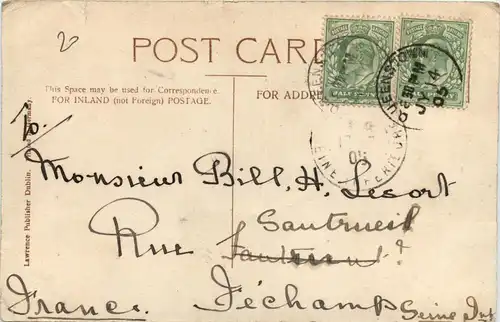 2
POST CARD
This Space may be used for Correspondence.
FOR INLAND (not Foreign) POSTAGE.
FOR ADDRE
QUEENSTOWN
JA 4
05
Lawrence Publisher Dublin.
to.
Monsieur Bill. H. Lesort
Sautreuil
Rue
France.
Féchamps Seine Inf